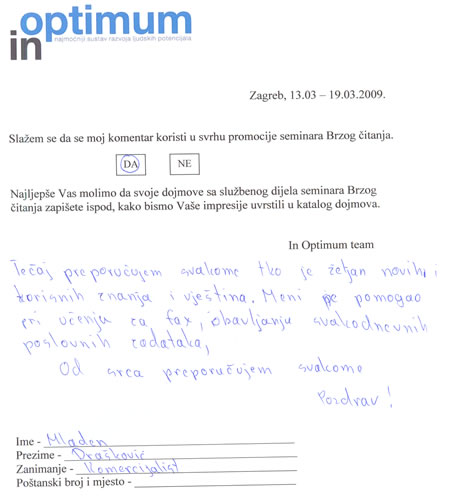 optimum
in
najmoćniji sustav razvoja ljudskih potencijala
Zagreb, 13.03 – 19.03.2009.
Slažem se da se moj komentar koristi u svrhu promocije seminara Brzog čitanja.
DA NE
Najljepše Vas molimo da svoje dojmove sa službenog dijela seminara Brzog
čitanja zapišete ispod, kako bismo Vaše impresije uvrstili u katalog dojmova.
In Optimum team
Tečaj preporučujem svakome tko je željan novih i
korisnih znanja i vještina. Meni je pomogao
pri učenja za fax, obavljanju svakodnevnih
poslovnih zadataka,
Od srca preporučujem svakome
Pozdrav!
Ime - Mladen
Prezime - Drašković
Zanimanje - Komercijalist
Poštanski broj i mjesto -